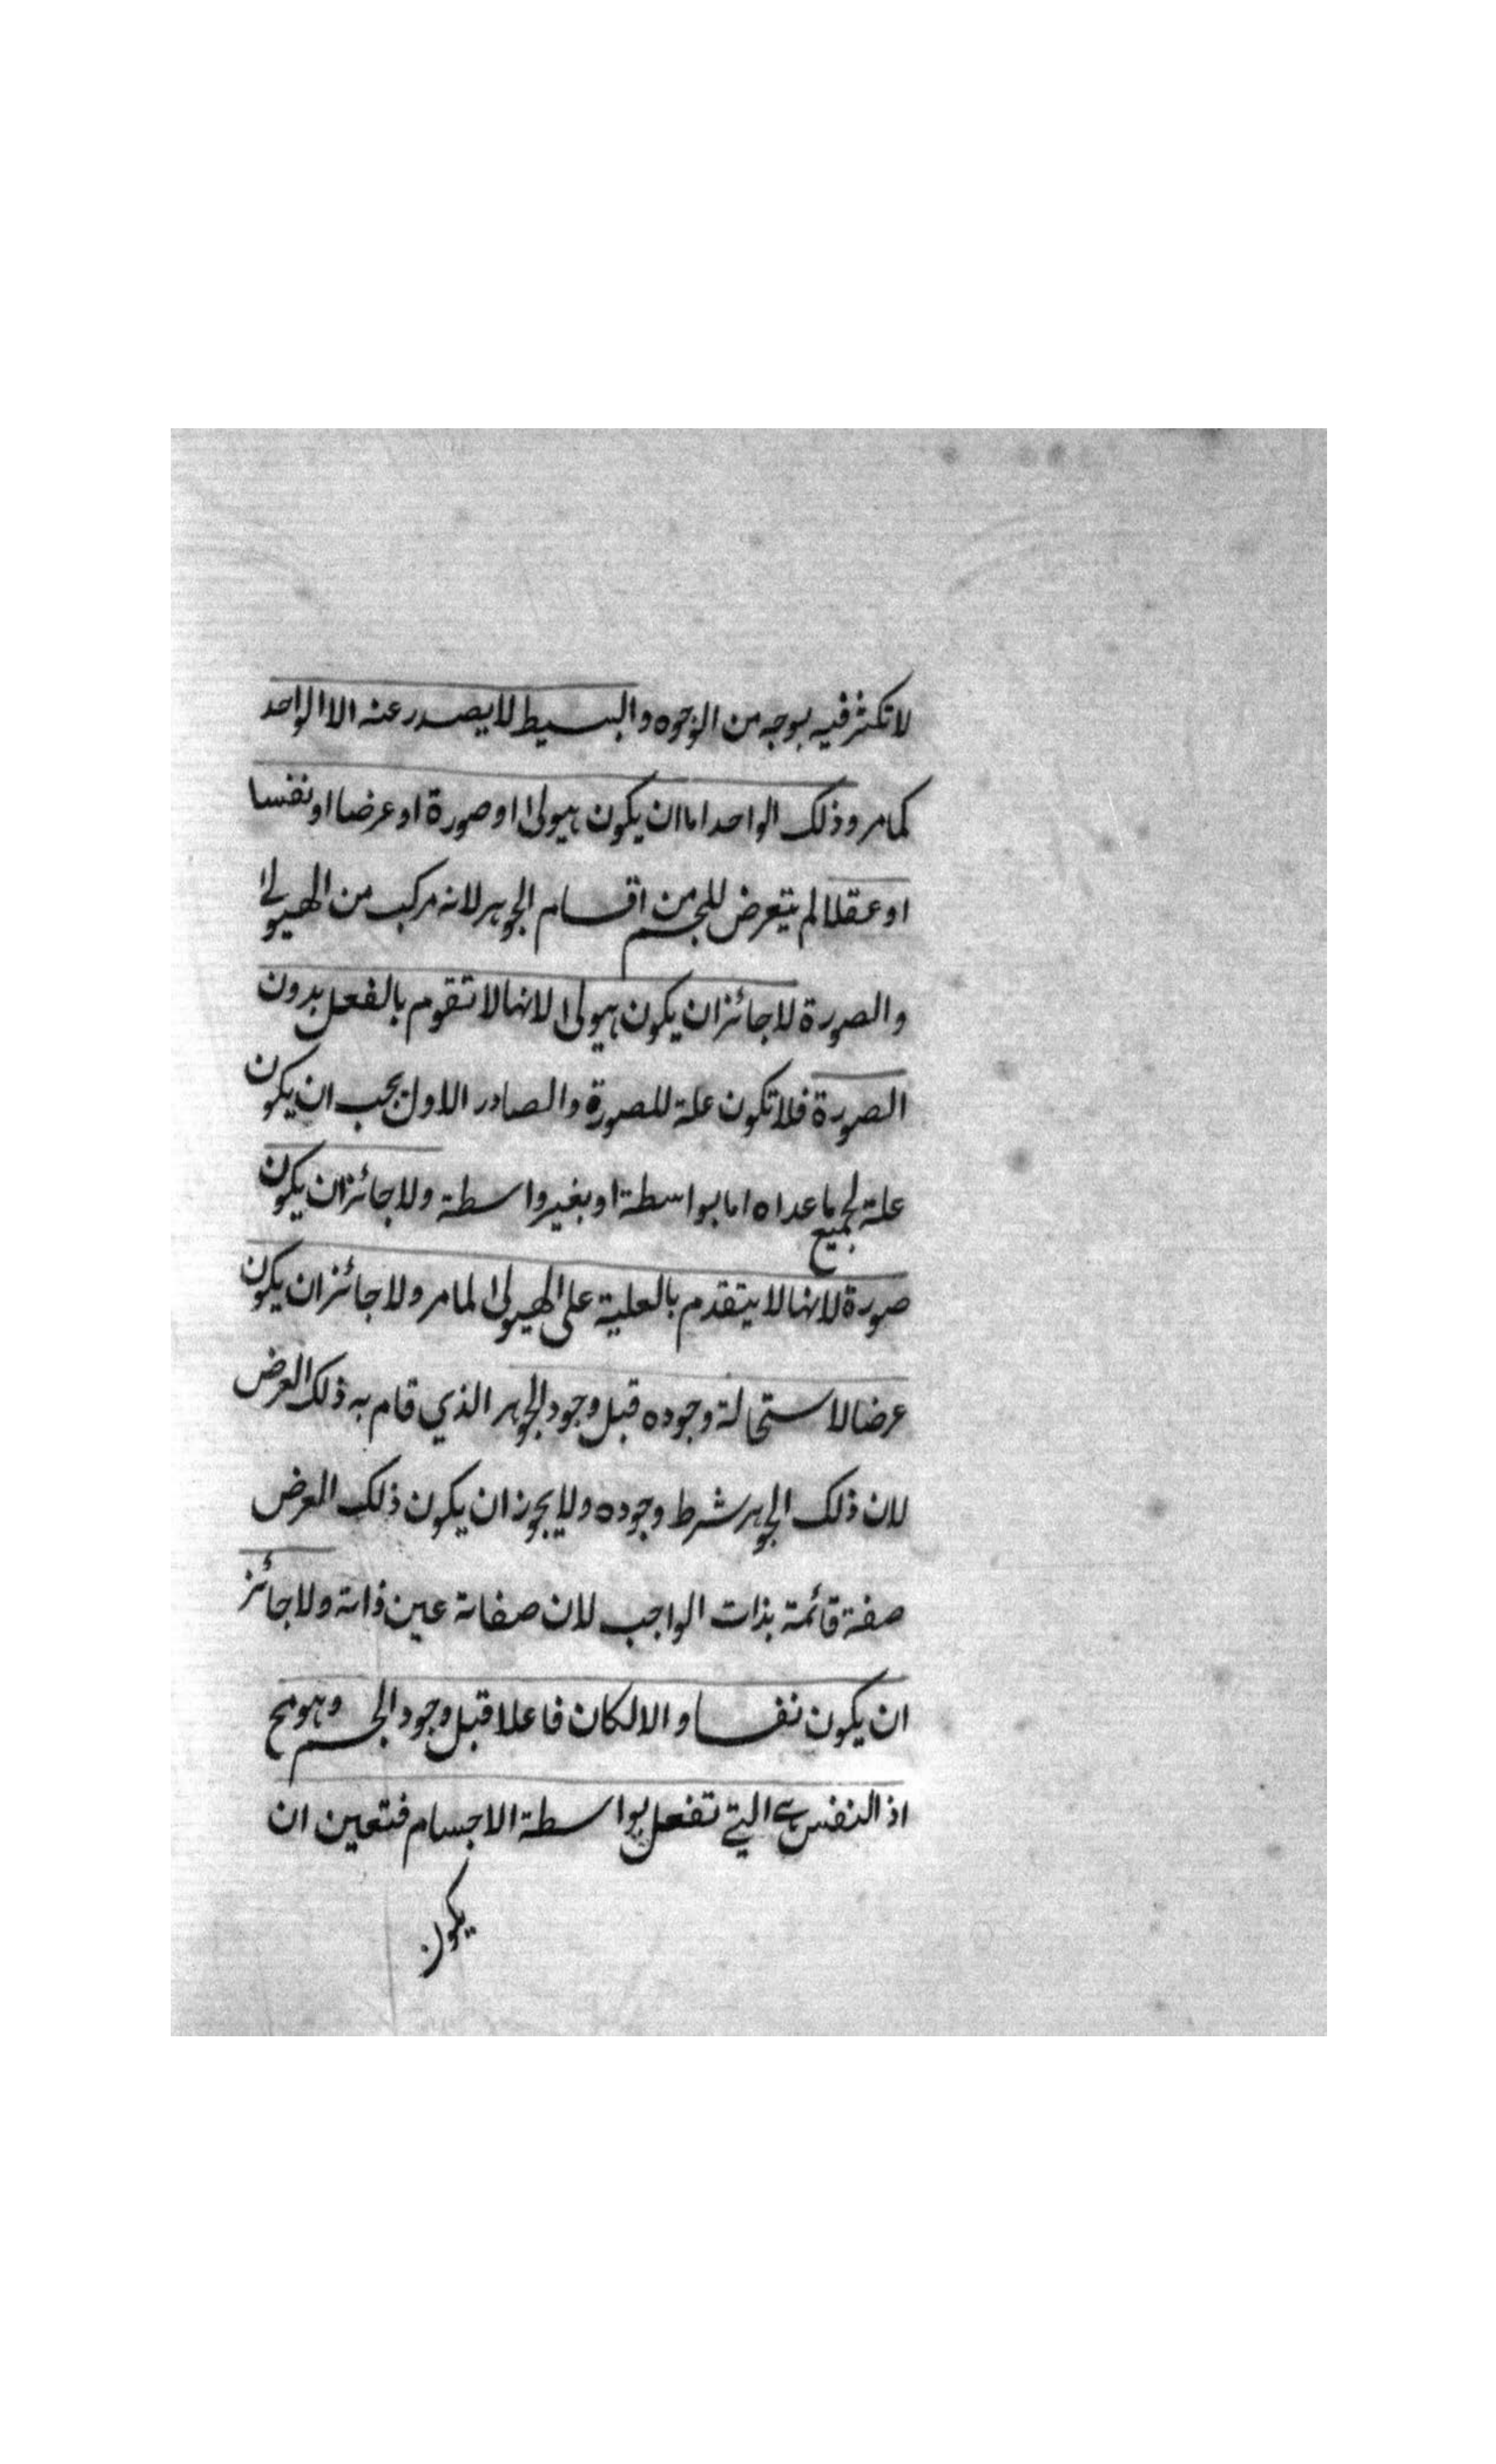 لا تكثر فيه بوجه من الوجوه والبسيط لا يصدر عنه الا الواحد
كما مر وذلك الواحد اما ان يكون هيولى او صورة او عرضا او نفسا
او عقلا لم يتعرض للجسم من اقسام الجوهر لانه مركب من الهيولى
والصورة لا جائز ان يكون هيولى لانها لا تقوم بالفعل بدون
الصورة فلا تكون علة للصورة والصادر الاول يجب ان يكون
علة لجميع ما عداه اما بواسطة او بغير واسطة ولا جائز ان يكون
صورة لانها لا يتقدم بالعلية على الهيولى لما مر ولا جائز ان يكون
عرضا لاستحالة وجوده قبل وجود الجوهر الذي قام به ذلك العرض
لان ذلك الجوهر شرط وجوده ولا يجوز ان يكون ذلك العرض
صفة قائمة بذات الواجب لان صفاته عين ذاته ولا جائز
ان يكون نفسا والا لكان فاعلا قبل وجود الجسم وهو مح
اذ النفس هي التي تفعل بواسطة الاجسام فتعين ان
يكون